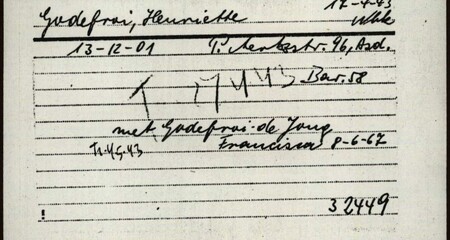 Godefroi, Henriette 17-4-43
13-12-01 P. Aertszstr. 96, Asd.
T 27 4 43 Bar. 58
met Godefroi-de Jong
Francisca 8-6-67
! 32449